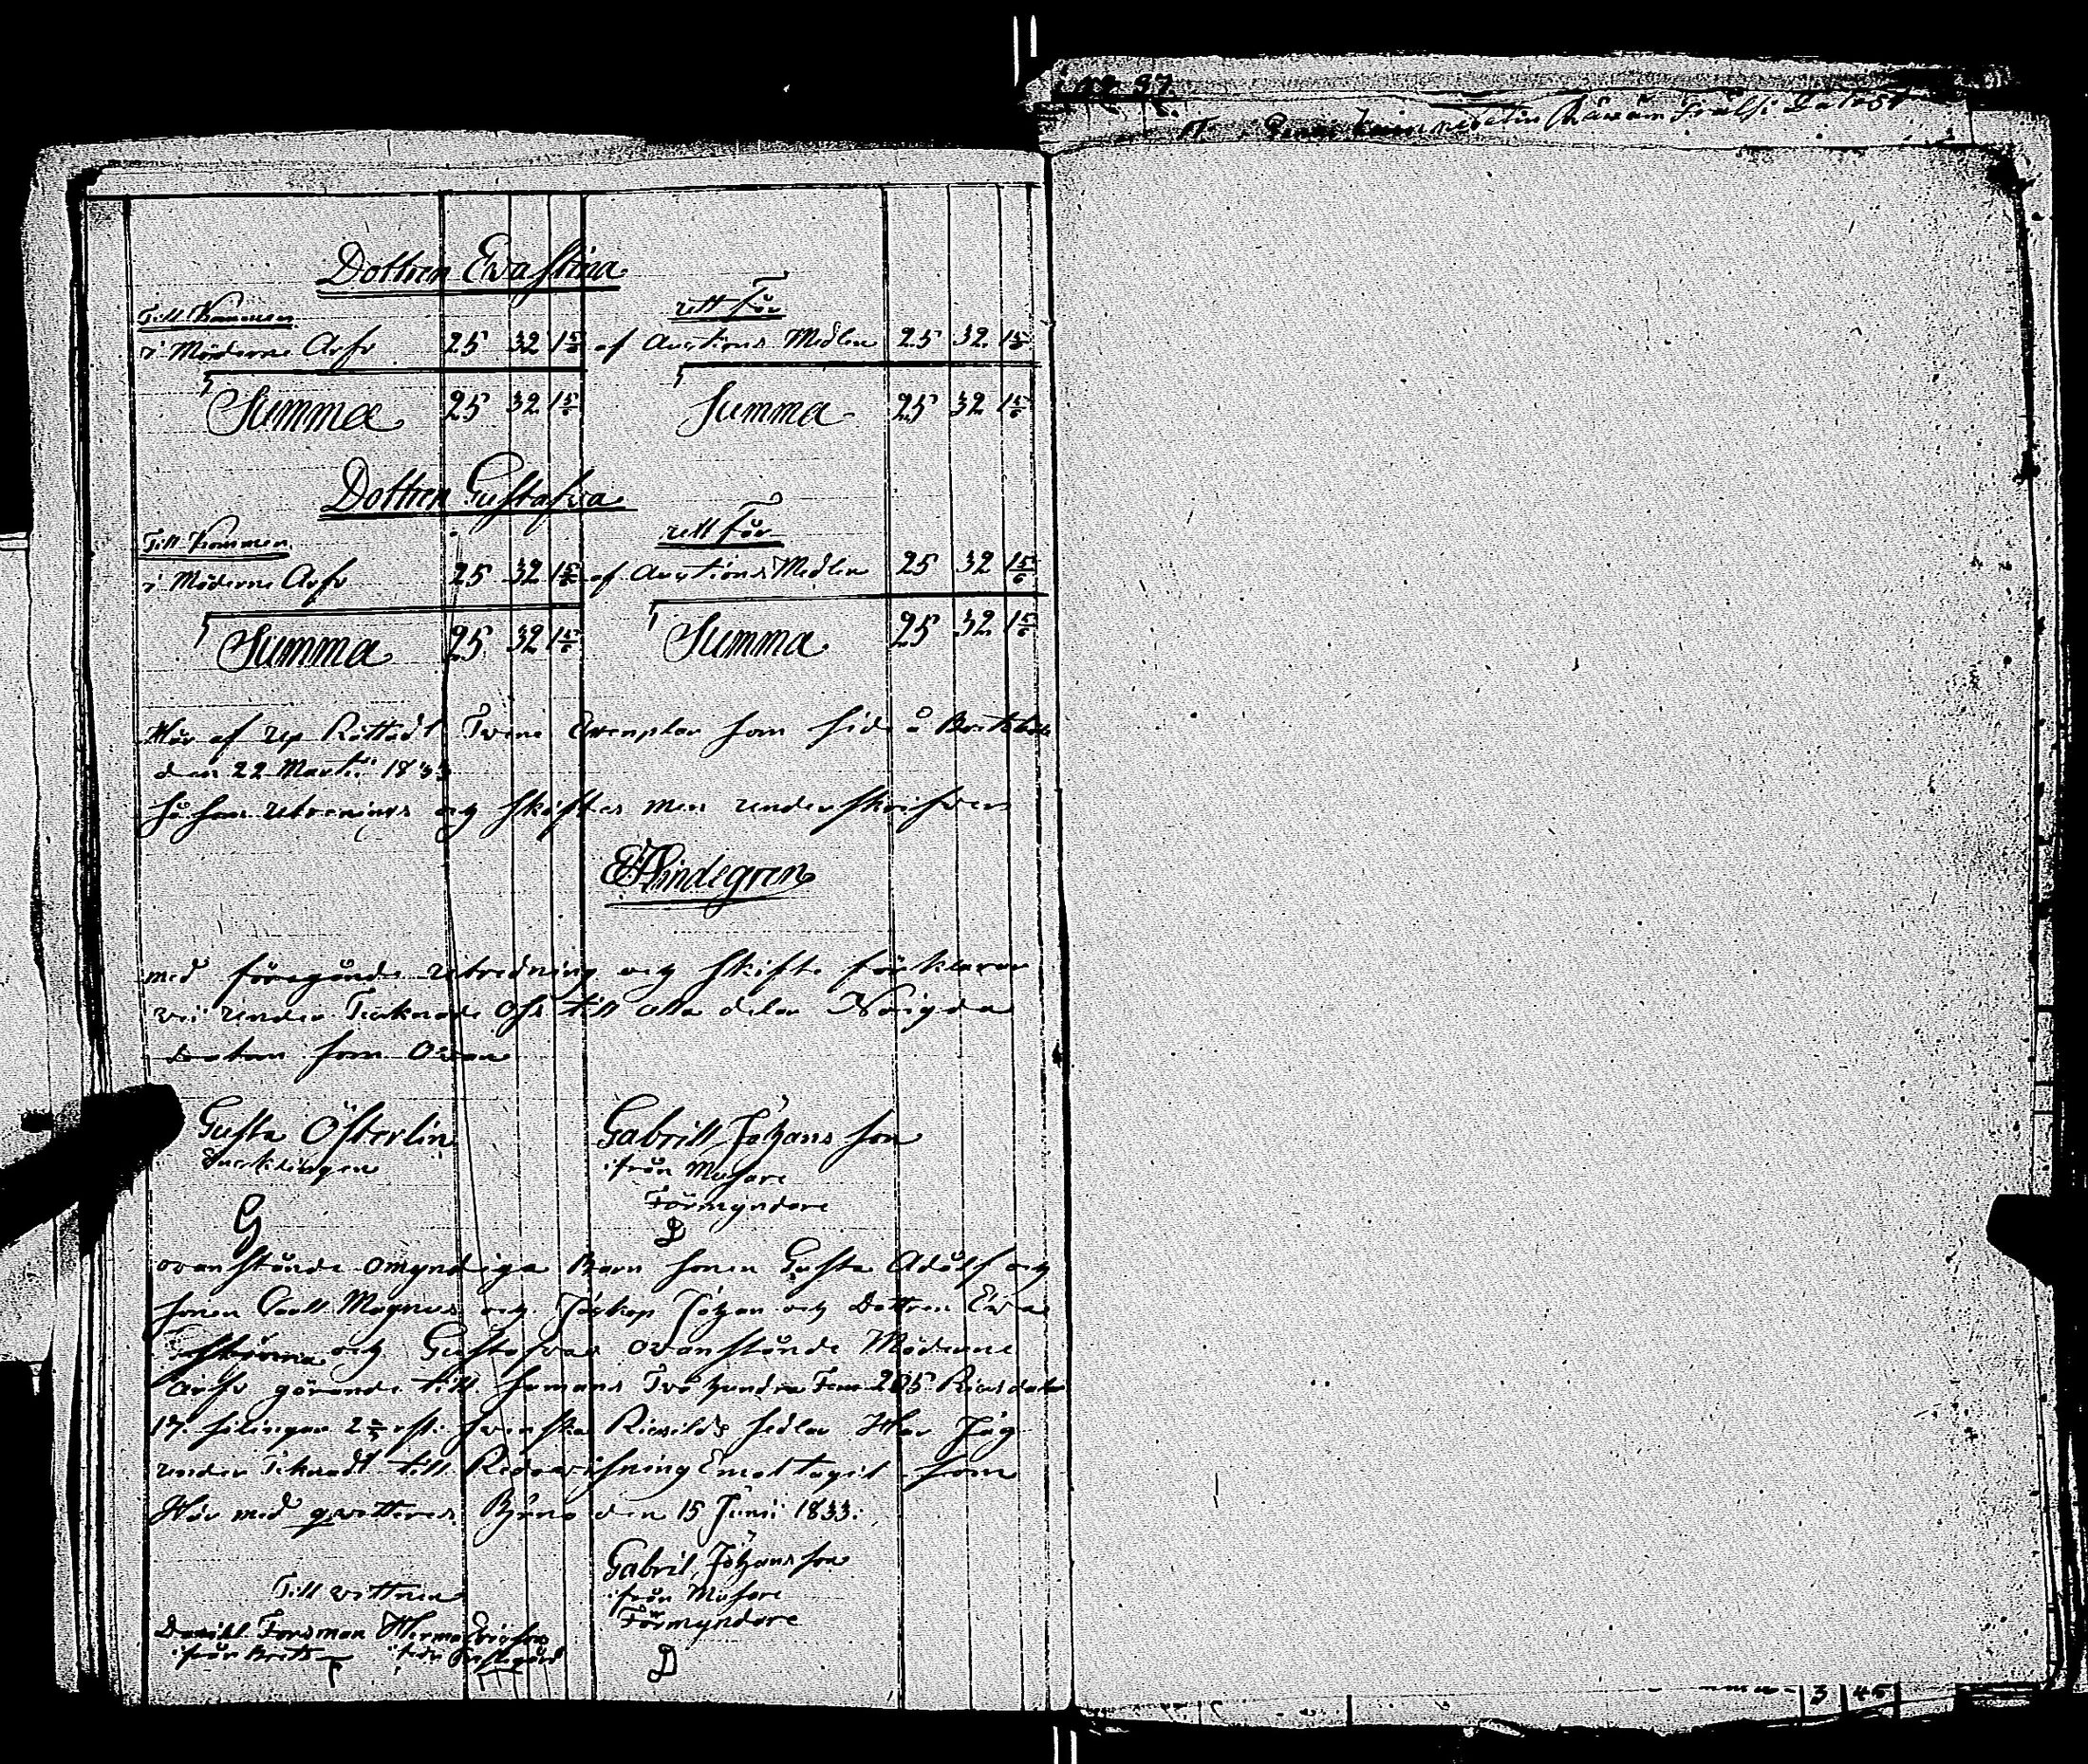 Dottren Eva Stina
Till kommer
i Möderne Arfv 25 32 1 5/6
rett får
af Auctions Medlen 25 32 1 5/6
Summa 25 32 1 5/6
Summa 25 32 1 5/6
Dottren Gustafva
Till kommer
i Möderne Arfv 25 32 1 5/6
rett får
af Auctions Medlen 25 32 1 5/6
Summa 25 32 1 5/6
Summa 25 32 1 5/6
Här af up Rettadt Tvene Exenplar som
den 22 Martii 1833
så som utrenings og skiftes men underskrifver
Lindegren
med föregånde utredning og skifte förklarar
vi under Tecknade Oss till alla delar Nöigda
datum som Ovan
Gusta Österlin
Encklingen
G
Gabrill Johans son
ifrån Mosare
Förmyndare
ovan stånde omyndiga Barn sonen Gusta Adolf og
sonen Carll Magnus og Jackop Johan och Dottren Eva
og Gustafvas ovanstånde Möderne
Arfv görande till somans Två hundra Fem 205 Ricksdaler
17 silingar 2 rst. svenska Ricksilds sedlar Har Jag
under Teknadt till Redovisning Emottagit som
Här med qvitteras den 15 Juni 1833.
Gabril Johans son
ifrån Mosare
Förmyndare
Till vittnen
Danill Forsman Herman Ericsson
ifrån
3 45